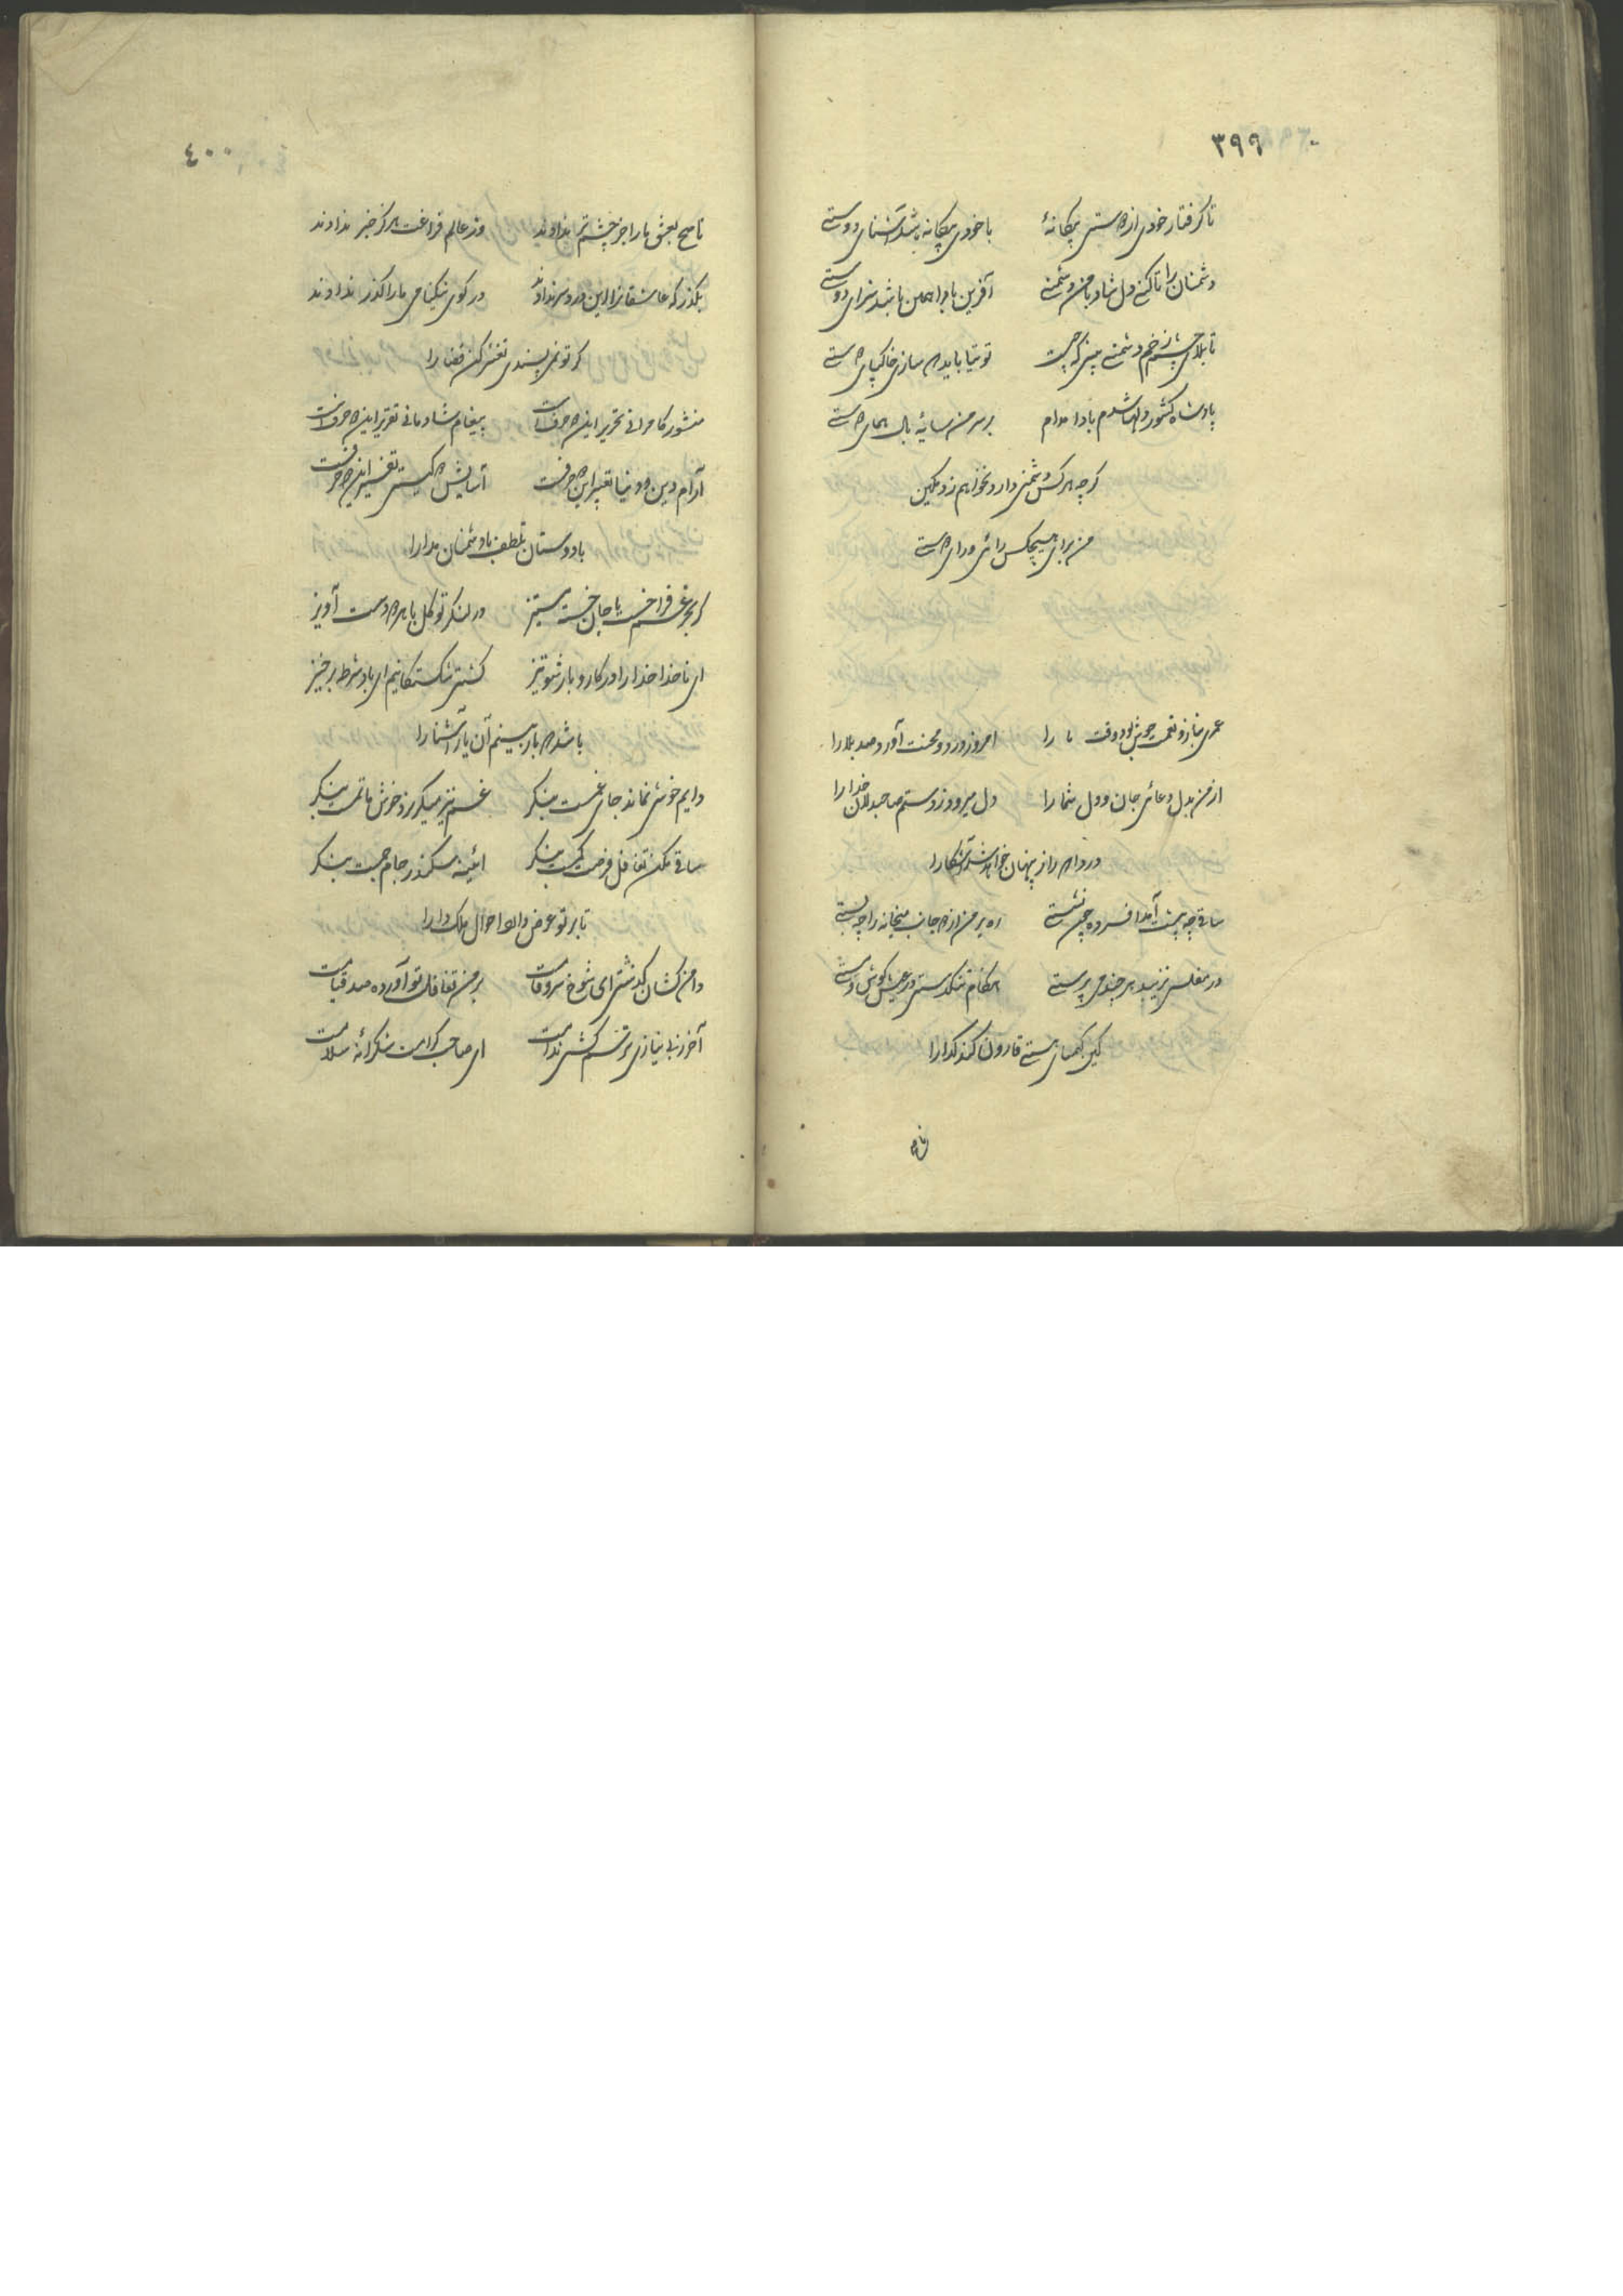 ۳۹۹
تا گرفتار خودی از دوستی بیگانهٔ با خودی بیگانه باشد آشنای دوستی
دشمنان را تا کنی دل شاد با من دشمنی آفرین بادا همین باشد سزای دوستی
تا بلای چشم زخم دشمنی بینی که چیست توتیا باید سازی خاکپای دوستی
پادشاه کشور دلها شدم بادا مدام بر سر من سایهٔ بال همای دوستی
گر چه هر کس دشمنی دارد نخواهم زد
من برای هیچکس رائی ورای دوستی
عمری بناز و نعمت خوش بود وقت ما را امروز درد و محنت آورد صد بلا را
از من بدل دعائی جان و دل شما را دل میرود ز دستم صاحبدلان خدا را
دردا که راز پنهان خواهد شد آشکارا
ساقی چه پیشت آمد افسرده چون نشستی ره بر من از چه جانب میخانه را چه بستی
در مفلسی نزیبد هر چند می پرستی هنگام تنگدستی در عیش کوش و مستی
کین کیمیای هستی قارون کند گدا را
۴۰۰
ناصح بعشق ما را جز چشم تر ندادند وز عالم فراغت هرگز خبر ندادند
بگذر که عاشقانرا این درد سر ندادند در کوی نیکنامی ما را گذر ندادند
گر تو نمی پسندی تغییر کن قضا را
منشور کامرانی تحریر این دو حرفست پیغام شادمانی تقریر این دو حرفست
آرام دین و دنیا تعبیر این دو حرفست آسایش دو گیتی تفسیر این دو حرفست
با دوستان تلطف با دشمنان مدارا
گر بحر غم فراخست با جان خسته مستیز در لنگر توکل با هر دو دست آویز
ای ناخدا خدا را در کار و بار شو تیز کشتی شکستگانیم ای باد شرطه برخیز
باشد که باز بینیم آن یار آشنا را
دایم خوشی نماند جای غمست بنگر غم نیز میگذرد خوش ماتمست بنگر
ساقی مکن تغافل فرصت کمست بنگر آئینهٔ سکندر جام جمست بنگر
تا بر تو عرضه دارد احوال ملک دارا
دامن کشان گذشتی ای شوخ سرو قامت بر من تغافل تو آورده صد قیامت
آخر ز بی نیازی ترسم کشی ندامت ای صاحب کرامت شکرانهٔ سلامت